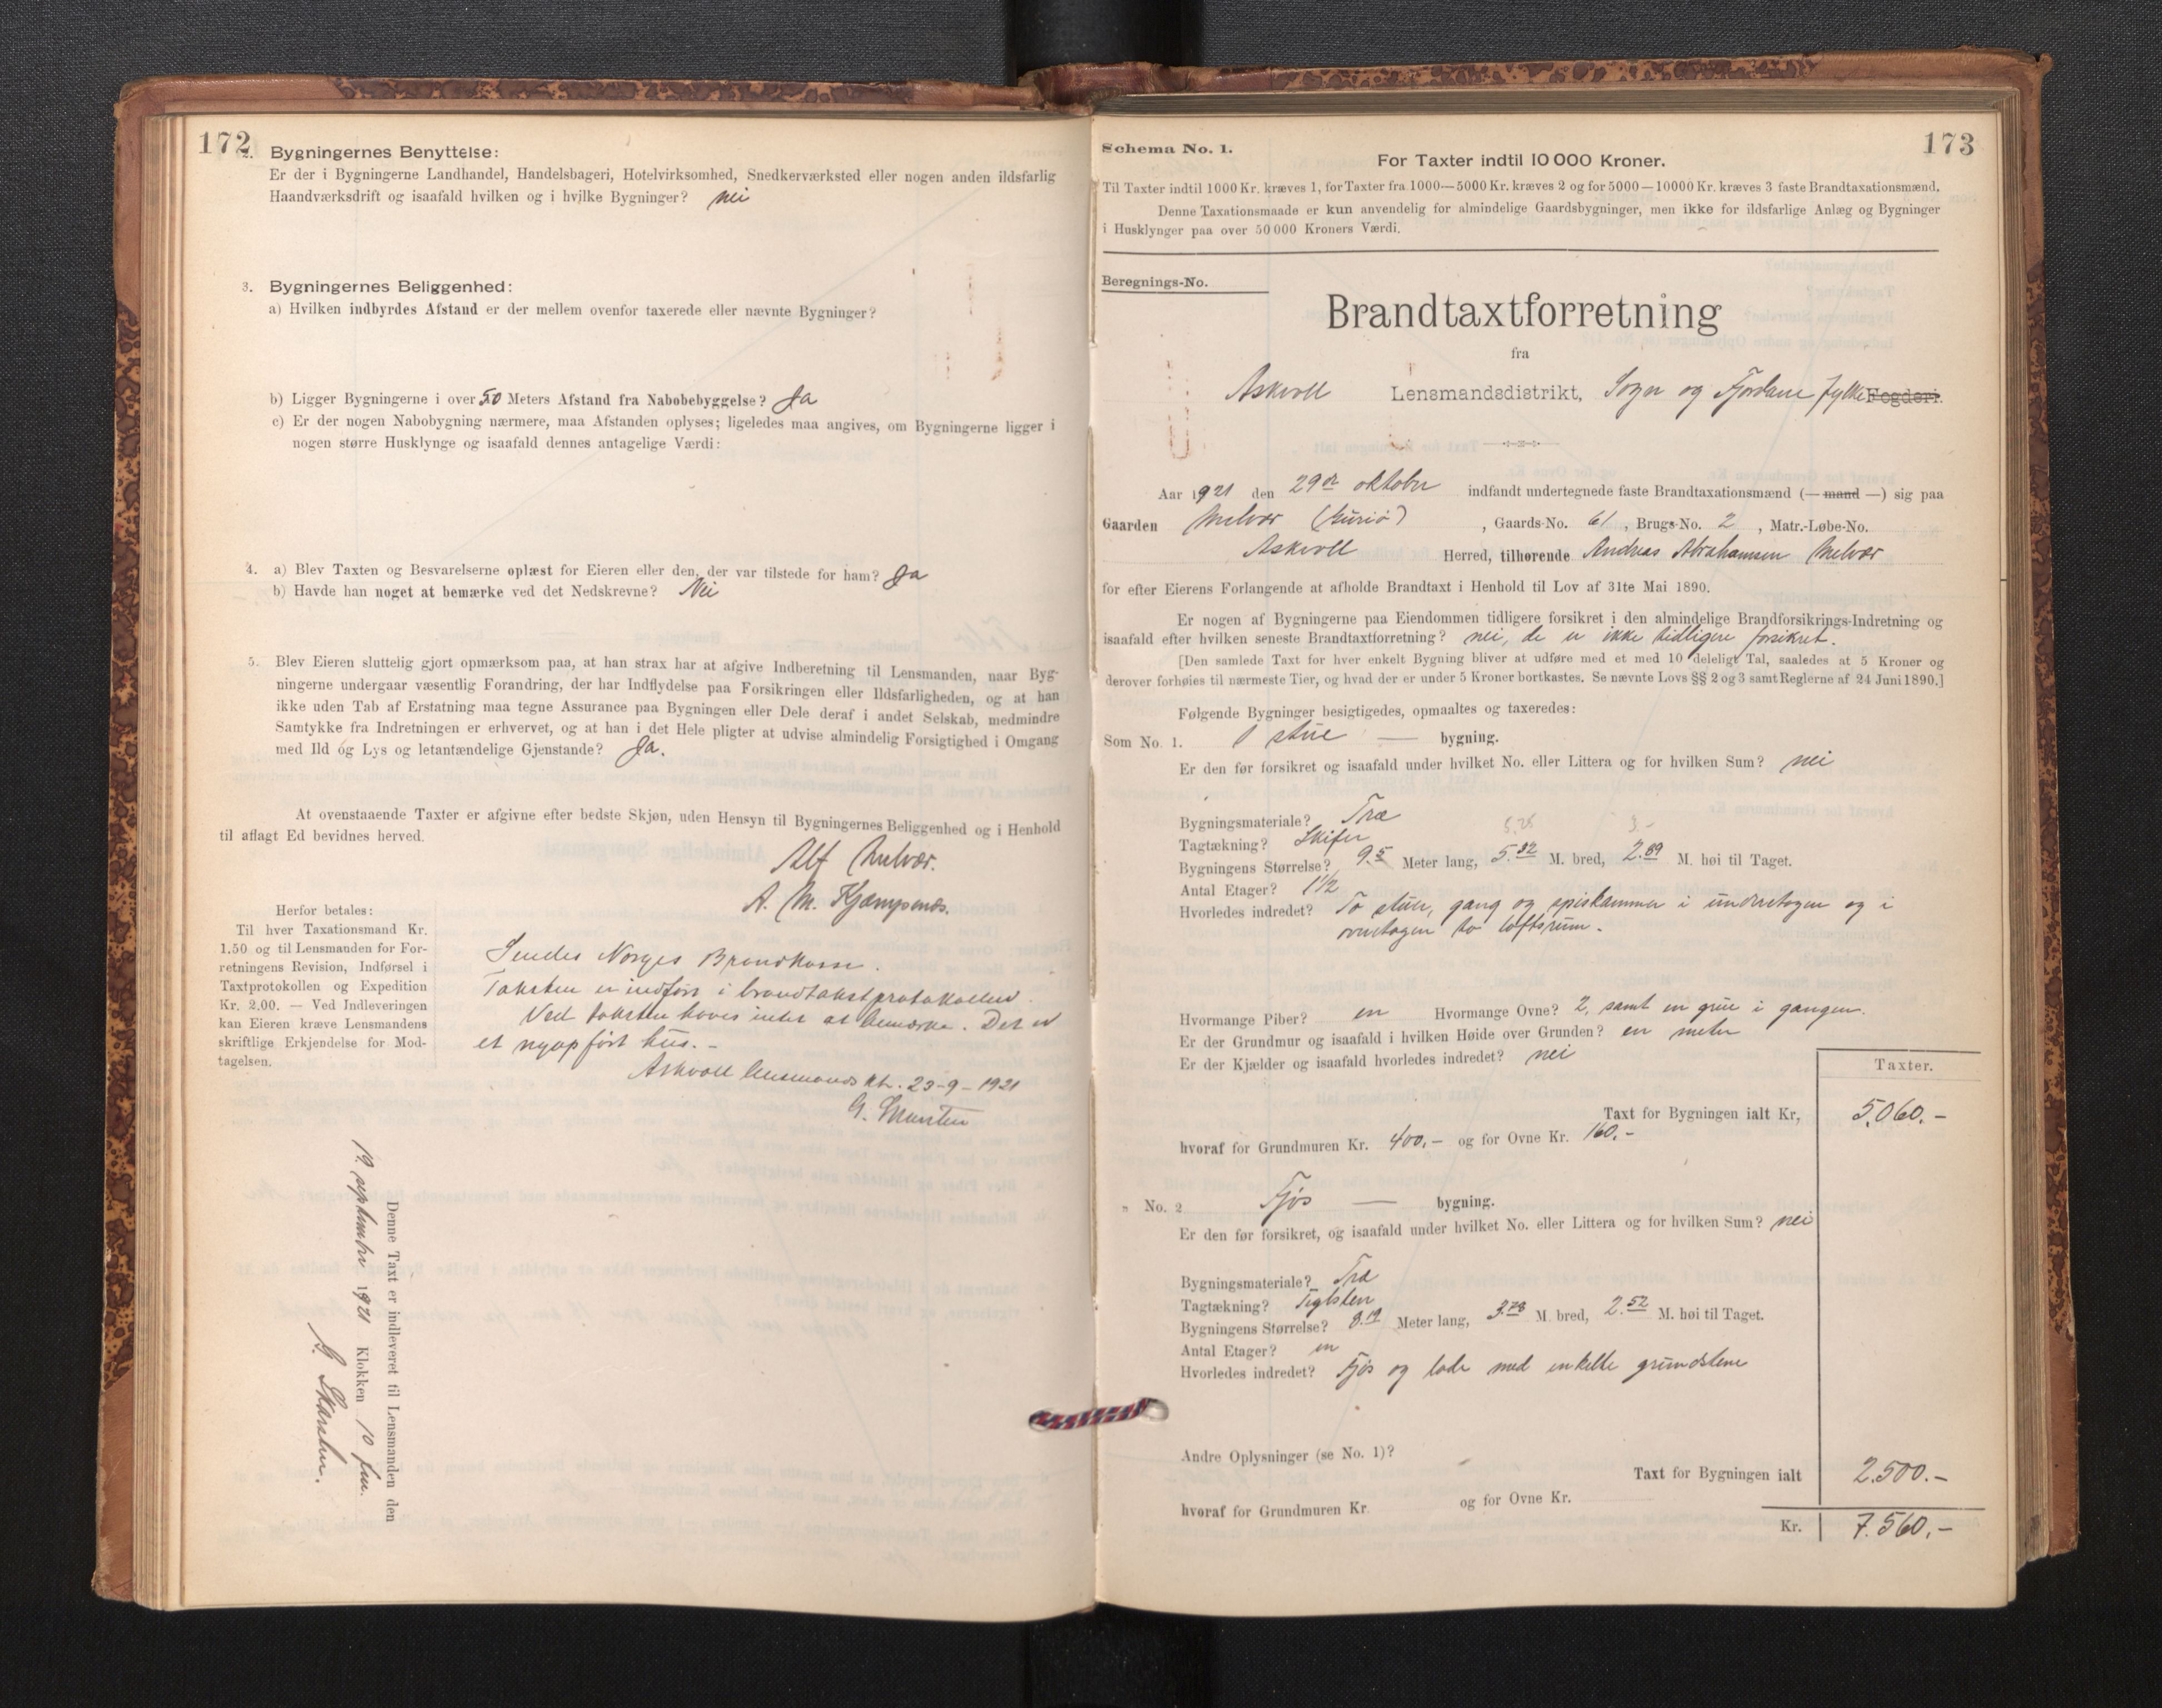 172
2. Bygningernes Benyttelse:
Er der i Bygningerne Landhandel, Handelsbageri, Hotelvirksomhed, Snedkerværksted eller nogen anden ildsfarlig
Haandværksdrift og isaafald hvilken og i hvilke Bygninger? nei
3. Bygningernes Beliggenhed:
a) Hvilken indbyrdes Afstand er der mellem ovenfor taxerede eller nævnte Bygninger?
b) Ligger Bygningerne i over 50 Meters Afstand fra Nabobebyggelse? Ja
c) Er der nogen Nabobygning nærmere, maa Afstanden oplyses; ligeledes maa angives, om Bygningerne ligger i
nogen større Husklynge og isaafald dennes antagelige Værdi:
4. a) Blev Taxten og Besvarelserne oplæst for Eieren eller den, der var tilstede for ham? Ja
b) Havde han noget at bemærke ved det Nedskrevne? Nei
5. Blev Eieren sluttelig gjort opmærksom paa, at han strax har at afgive Indberetning til Lensmanden, naar Byg-
ningerne undergaar væsentlig Forandring, der har Indflydelse paa Forsikringen eller Ildsfarligheden, og at han
ikke uden Tab af Erstatning maa tegne Assurance paa Bygningen eller Dele deraf i andet Selskab, medmindre
Samtykke fra Indretningen er erhvervet, og at han i det Hele pligter at udvise almindelig Forsigtighed i Omgang
med Ild og Lys og letantændelige Gjenstande? Ja.
At ovenstaaende Taxter er afgivne efter bedste Skjøn, uden Hensyn til Bygningernes Beliggenhed og i Henhold
til aflagt Ed bevidnes herved.
Alf Melvær.
A. M. Kjempenes.
Herfor betales:
Til hver Taxationsmand Kr.
1.50 og til Lensmanden for For-
retningens Revision, Indførsel i
Taxtprotokollen og Expedition
Kr. 2.00. — Ved Indleveringen
kan Eieren kræve Lensmandens
skriftlige Erkjendelse for Mod-
tagelsen.
Sendes Norges Brandkasse.
Taksten er indført i brandtakstprotokollen.
Ved taksten haves intet at bemærke. Det er
et nyopført hus. -
Askvoll lensmannskt. 23-9-1921
G.
Denne Taxt er indleveret til Lensmanden den
19. september 1921 Klokken 10 fm.
G.
173
Schema No. 1.
For Taxter indtil 10 000 Kroner.
Til Taxter indtil 1000 Kr. kræves 1, for Taxter fra 1000—5000 Kr. kræves 2 og for 5000—10000 Kr. kræves 3 faste Brandtaxationsmænd.
Denne Taxationsmaade er kun anvendelig for almindelige Gaardsbygninger, men ikke for ildsfarlige Anlæg og Bygninger
i Husklynger paa over 50 000 Kroners Værdi.
Beregnings-No.
Brandtaxtforretning
fra
Askvoll Lensmandsdistrikt, Sogn og Fjordane fylke Fogderi.
Aar 1921 den 29de oktober indfandt undertegnede faste Brandtaxationsmænd (— mand —) sig paa
Gaarden Melvær, Gaards-No. 61, Brugs-No. 2, Matr.-Løbe-No.
Askvoll Herred, tilhørende Andreas Abrahamsen Melvær
for efter Eierens Forlangende at afholde Brandtaxt i Henhold til Lov af 31te Mai 1890.
Er nogen af Bygningerne paa Eiendommen tidligere forsikret i den almindelige Brandforsikrings-Indretning og
isaafald efter hvilken seneste Brandtaxtforretning? nei, de er ikke tidligere forsikret.
[Den samlede Taxt for hver enkelt Bygning bliver at udføre med et med 10 deleligt Tal, saaledes at 5 Kroner og
derover forhøies til nærmeste Tier, og hvad der er under 5 Kroner bortkastes. Se nævnte Lovs §§ 2 og 3 samt Reglerne af 24 Juni 1890.]
Følgende Bygninger besigtigedes, opmaaltes og taxeredes:
Som No. 1. 1 stue — bygning.
Er den før forsikret og isaafald under hvilket No. eller Littera og for hvilken Sum? nei
Bygningsmateriale? Træ
Tagtækning? Skifer
Bygningens Størrelse? 9.5 Meter lang, 5.32 M. bred, 2.89 M. høi til Taget.
Antal Etager? 1 1/2
Hvorledes indredet? To stuer, gang og spiskammer i underetagen og i
overetagen to loftsrum.
Hvormange Piber? en Hvormange Ovne? 2, samt en grue i gangen.
Er der Grundmur og isaafald i hvilken Høide over Grunden? en meter
Er der Kjælder og isaafald hvorledes indredet? nei
Taxter.
Taxt for Bygningen ialt Kr, 5.060.-
hvoraf for Grundmuren Kr. 400,- og for Ovne Kr. 160.-
" No. 2 Fjøs — bygning.
Er den før forsikret, og isaafald under hvilket No. eller Littera og for hvilken Sum? nei
Bygningsmateriale? Træ
Tagtækning? Teglsten
Bygningens Størrelse? 8.19 Meter lang, 3.78 M. bred, 2.52 M. høi til Taget.
Antal Etager? en
Hvorledes indredet? Fjøs og lade med enkelte grundstene
Andre Oplysninger (se No. 1)?
Taxt for Bygningen ialt 2.500.-
hvoraf for Grundmuren Kr. og for Ovne Kr.
Kr. 7.560,-